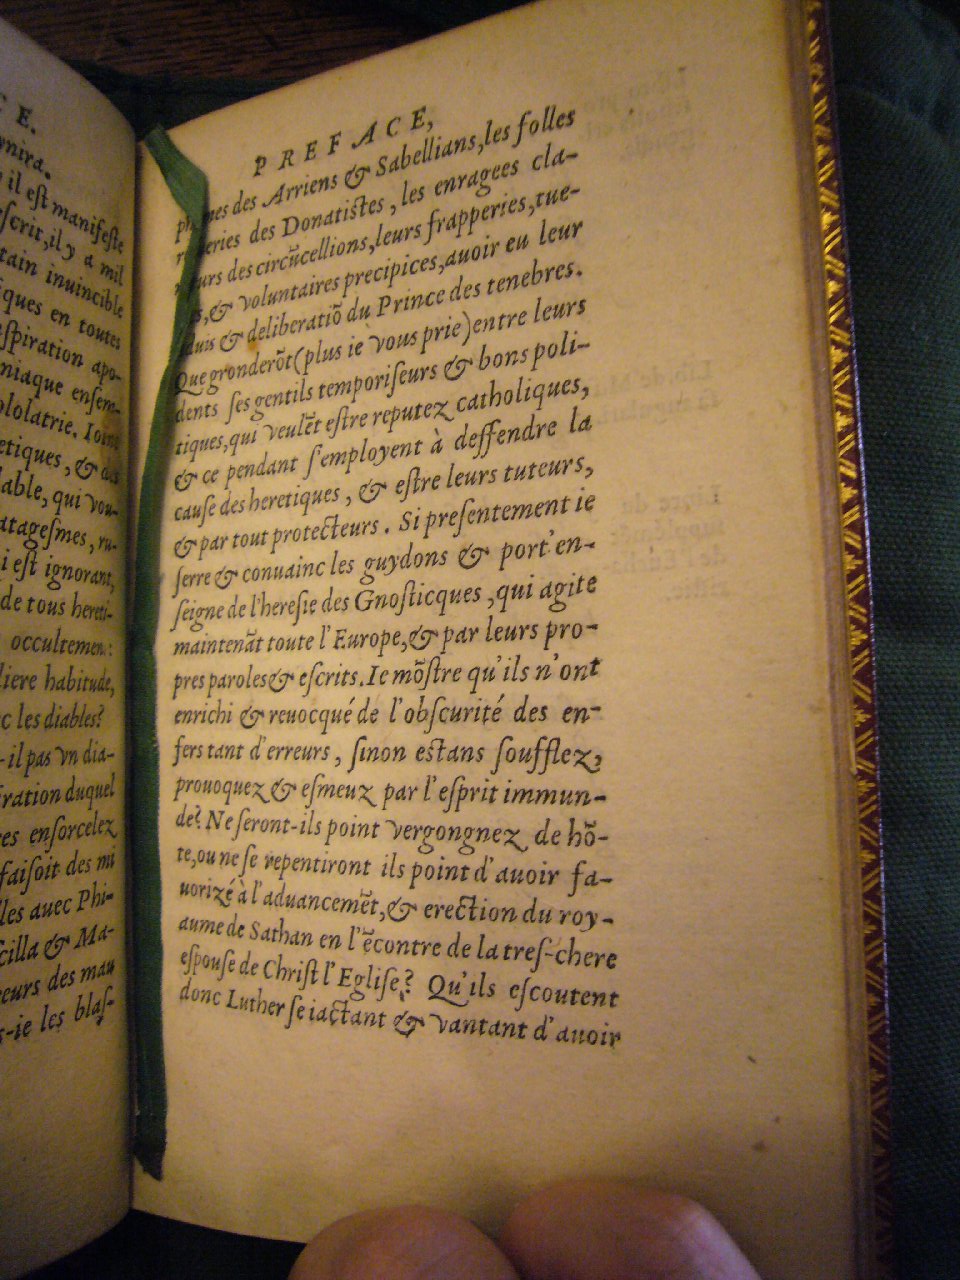 C E.
il est manifeste
il y a mil
inuincible
ques en toutes
spiration apo-
niaque ensem-
lolatrie. Ioint
etiques, &
able, qui vou-
atagesmes, ru-
i est ignorant,
de tous hereti-
occultement:
liere habitude,
c les diables?
-il pas vn dia-
ration duquel
es ensorcelez
faisoit des mi
lles auec Phi-
cilla & Ma-
eurs des mau
s-ie les blas-
PREFACE,
des Arriens & Sabellians, les folles
des Donatistes, les enragees cla-
des circũcellions, leurs frapperies, tue-
& voluntaires precipices, auoir eu leur
& deliberatiõ du Prince des tenebres.
Que gronderõt (plus ie vous prie) entre leurs
dents ses gentils temporiseurs & bons poli-
tiques, qui veulẽt estre reputez catholiques,
& ce pendant s'employent à deffendre la
cause des heretiques, & estre leurs tuteurs,
& par tout protecteurs. Si presentement ie
serre & conuainc les guydons & port'en-
seigne de l'heresie des Gnosticques, qui agite
maintenãt toute l'Europe, & par leurs pro-
pres paroles & escrits. Ie mõstre qu'ils n'ont
enrichi & reuocqué de l'obscurité des en-
fers tant d'erreurs, sinon estans soufflez,
prouoquez & esmeuz par l'esprit immun-
de? Ne seront-ils point vergongnez de hõ-
te, ou ne se repentiront ils point d'auoir fa-
uorizé à l'aduancemẽt, & erection du roy-
aume de Sathan en l'ẽcontre de la tres-chere
espouse de Christ l'Eglise? Qu'ils escoutent
donc Luther se iactant & vantant d'auoir